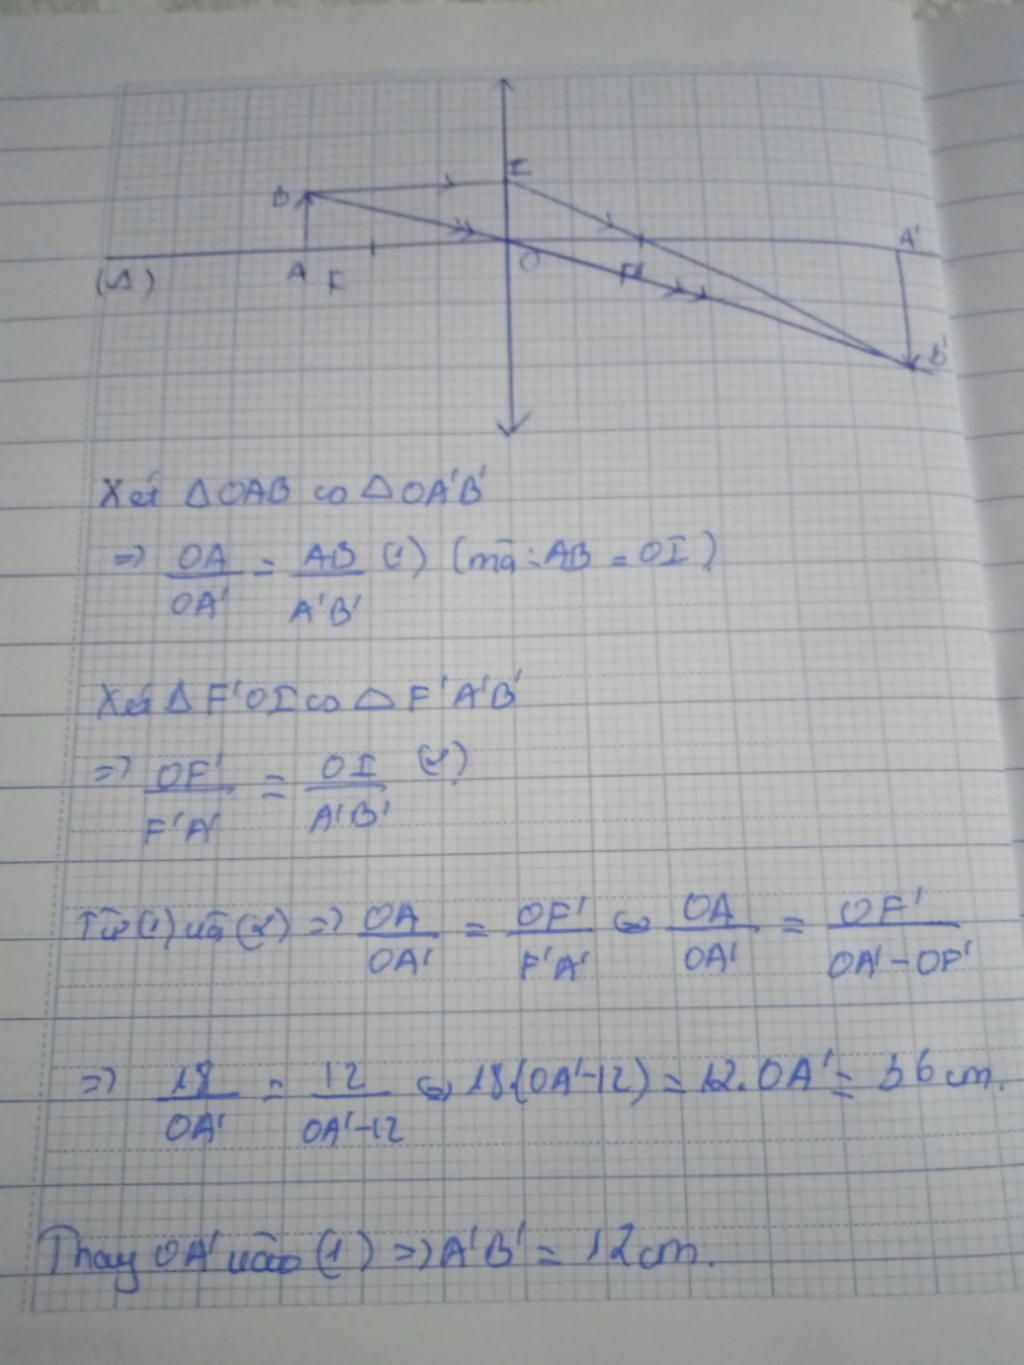 B I
(Δ) A F O F' A' B'
Xét ΔOAB ∽ ΔOA'B'
=> OA/OA' = AB/A'B' (1) (mà: AB = OI)
Xét ΔF'OI ∽ ΔF'A'B'
=> OF'/F'A' = OI/A'B' (2)
Từ (1) và (2) => OA/OA' = OF'/F'A' ⇔ OA/OA' = OF'/OA'-OF'
=> 18/OA' = 12/OA'-12 ⇔ 18.(OA'-12) = 12.OA' = 36cm.
Thay OA' vào (1) => A'B' = 12cm.